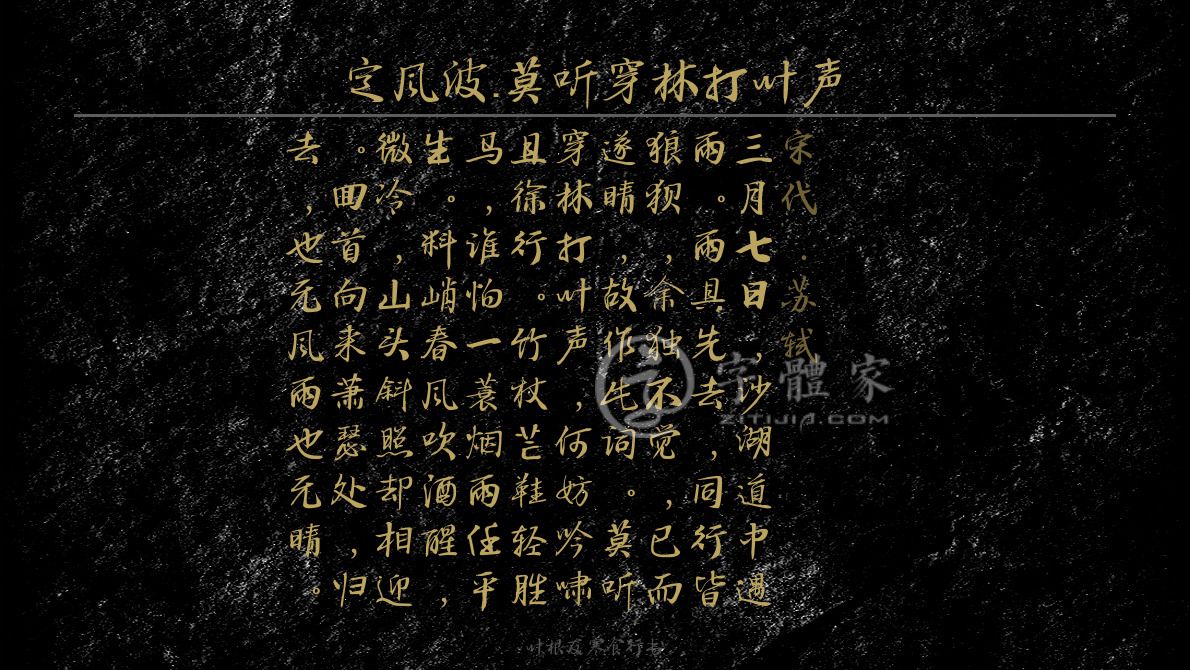 定风波.莫听穿林打叶声
宋代.苏轼
三月七日,沙湖道中遇
雨。雨具先去,同行皆
狼狈,余独不觉,已而
遂晴,故作此词。莫听
穿林打叶声,何妨吟啸
且徐行。竹杖芒鞋轻胜
马,谁怕?一蓑烟雨任平
生。料峭春风吹酒醒,
微冷,山头斜照却相迎
。回首向来萧瑟处,归
去,也无风雨也无晴。
字體家
ZITIJIA.COM
叶根友寒食行书